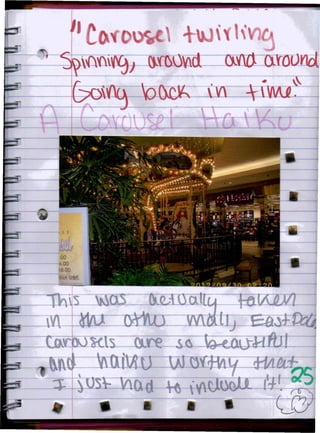 "Carousel twirling
Spinning, around and around
Going back in time."
A Carousel Haiku
2012/09/30
This was actually taken
in the other mall, EastDale
Carousels are so beautiful
and haiku worthy that
I just had to include it!
25